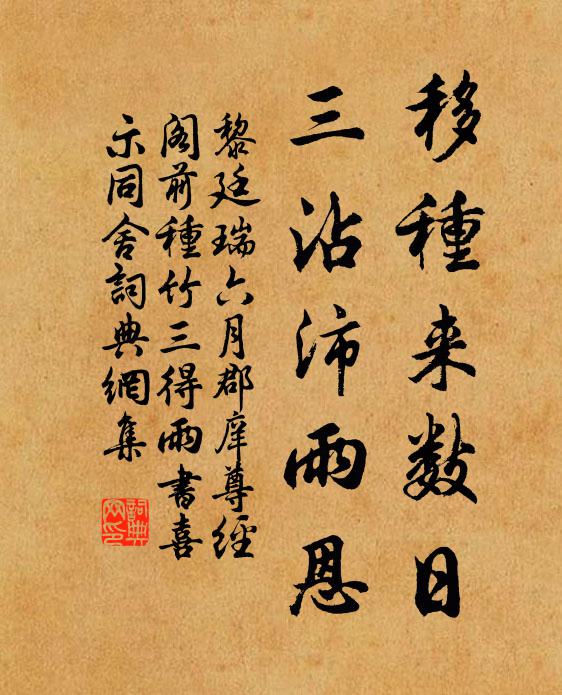 移種来数日
三沾沛雨恩
黎廷瑞六月郡庠尊經
閣前種竹三得雨書喜
示同舍詞典網集
詞典網印